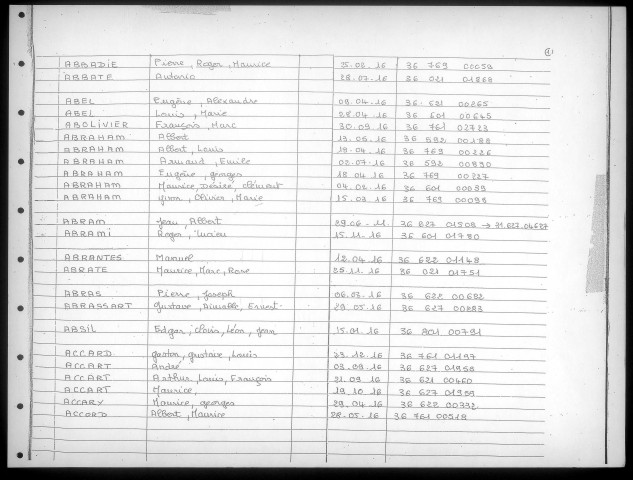 ABBADIE Pierre, Roger, Maurice 25.02.16 36 769 00059
ABBATE Antonio 28.07.16 36 021 01268
ABEL Eugène, Alexandre 09.04.16 36 621 00265
ABEL Louis, Marie 28.04.16 36 601 00645
ABOLIVIER François, Marc 30.09.16 36 761 02723
ABRAHAM Albert 13.05.16 36 592 00188
ABRAHAM Albert, Louis 19.04.16 36 769 00226
ABRAHAM Armand, Emile 02.07.16 36 592 00830
ABRAHAM Eugène, georges 18.04.16 36 769 00227
ABRAHAM Maurice, Désiré, clément 04.02.16 36 601 00089
ABRAHAM Yvon, Olivier, Marie 15.03.16 36 769 00098
ABRAM Jean, Albert 29.06.11. 36 627 01908 → 71.627.04627
ABRAMI Roger, Lucien 15.11.16 36 601 01780
ABRANTES Manuel 12.04.16 36 622 01148
ABRATE Maurice, Marc, Rose 25.11.16 36 021 01751
ABRAS Pierre, Joseph 06.03.16 36 622 00622
ABRASSART Gustave, Aimable, Ernest 29.05.16 36 627 00283
ABSIL Edgar, Clovis, Léon, Jean 15.01.16 36 801 00791
ACCARD gaston, gustave, Louis 23.12.16 36 761 01197
ACCART André 03.09.16 36 627 01958
ACCART Arthur, Louis, François 21.09.16 36 621 00460
ACCART Maurice, 19.10.16 36 627 01959
ACCARY Maurice, georges 29.04.16 36 622 00332
ACCORD Albert, Maurice 28.05.16 36 761 00518